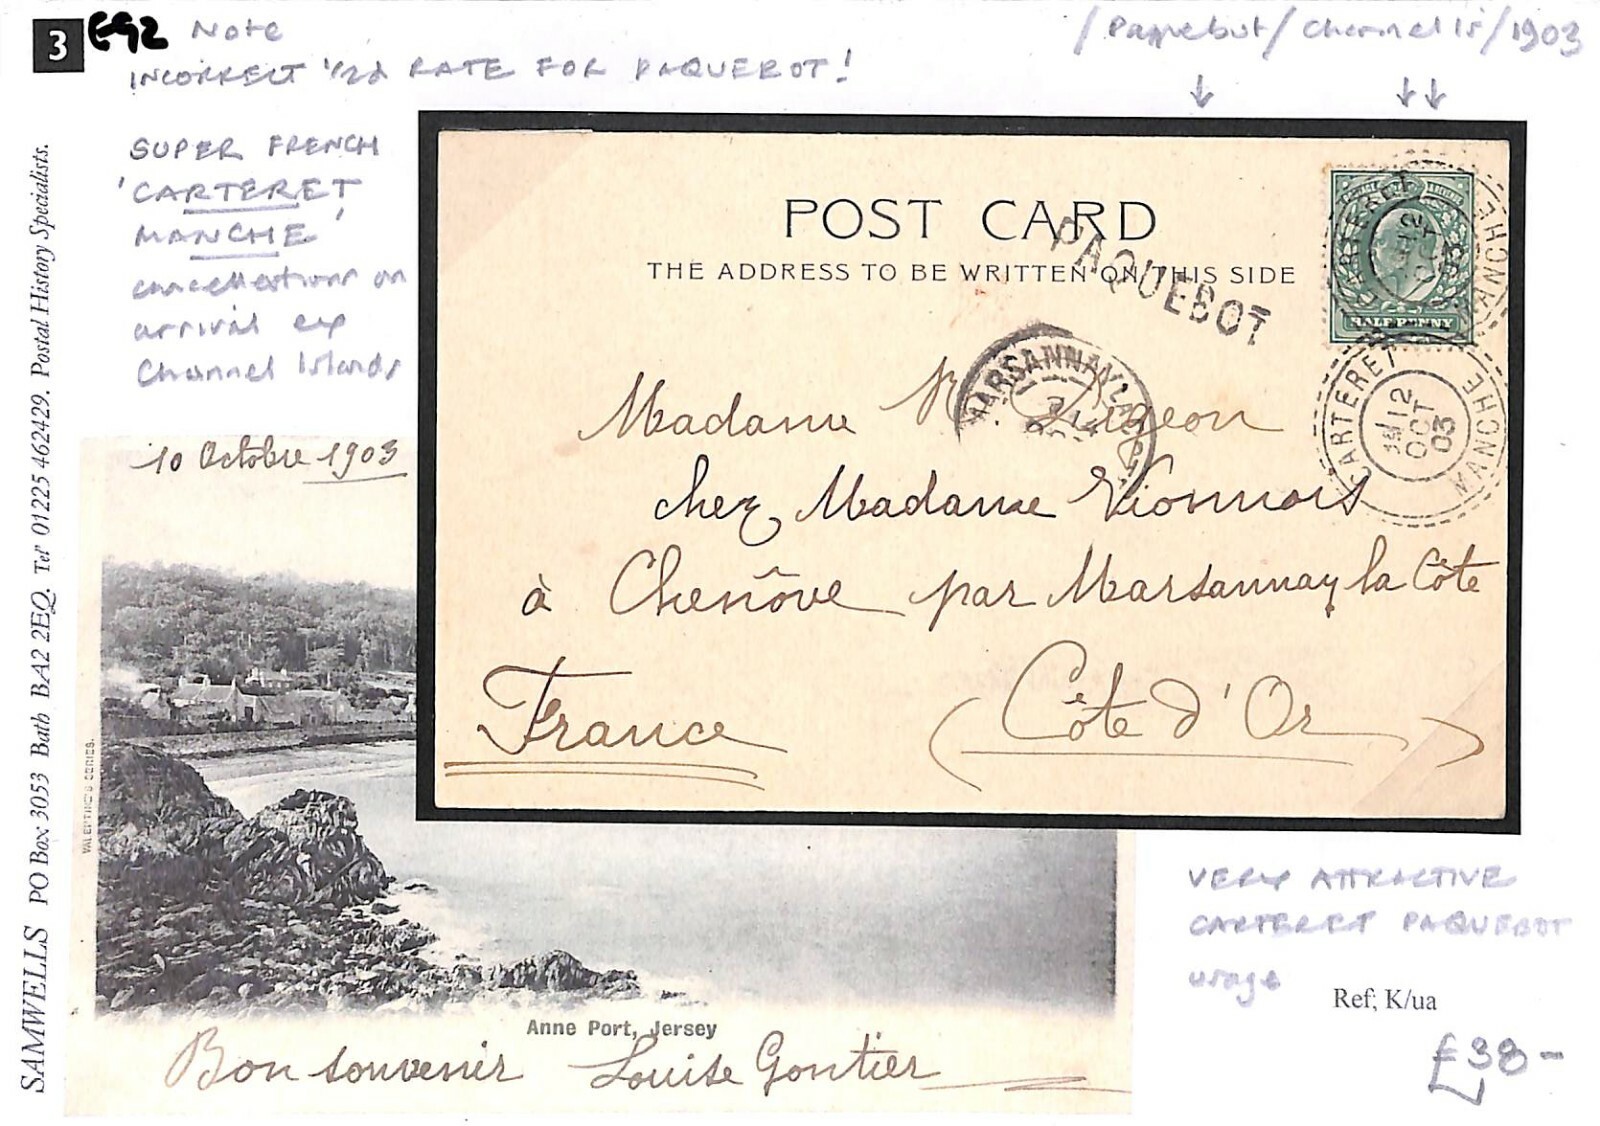 3 E92 Note
INCORRECT 1/2d RATE FOR PAQUEBOT!
/Paquebot/Channel Is/1903
SUPER FRENCH
'CARTERET
MANCHE'
cancellations on
arrival ex
Channel Islands
SAMWELLS PO Box 3053 Bath BA2 2EQ. Tel' 01225 462429. Postal History Specialists.
POST CARD
THE ADDRESS TO BE WRITTEN ON THIS SIDE
PAQUEBOT
HALFPENNY
CARTERET MANCHE
12
OCT
03
CARTERET MANCHE
12
OCT
03
MARSANNAY LA
Madame
chez Madame Vionnois
à Chenôve par Marsannay la Côte
France (Côte d'Or)
10 Octobre 1903
VALENTINE'S SERIES.
Anne Port, Jersey
Bon souvenir Louise Gontier
VERY ATTRACTIVE
CARTERET PAQUEBOT
usage
Ref; K/ua
£38-